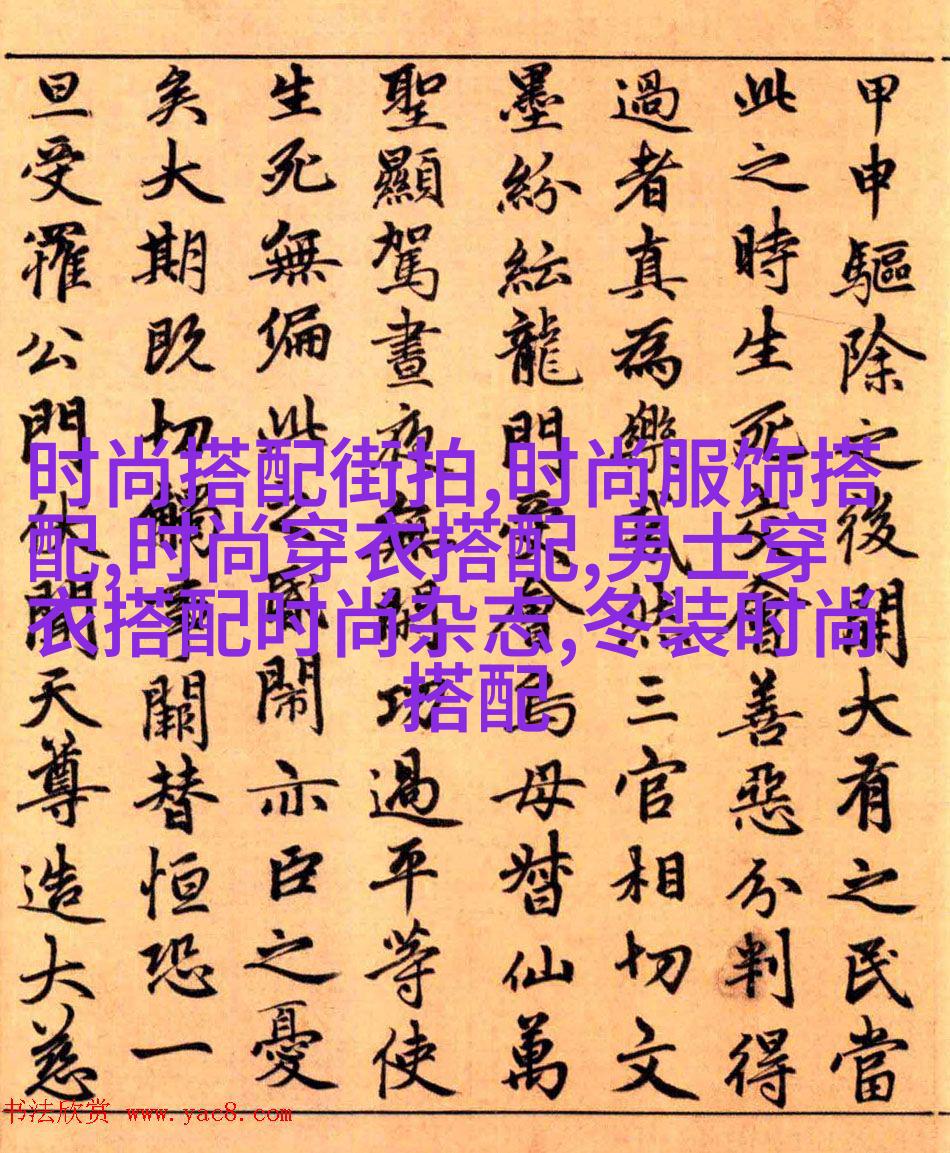 甲申驅除之後開大有之民當
此之時生死交會善惡分判得
過者真為樂哉然三官相切文
墨紛紜龍門受會鳥母督仙萬
聖顯駕晝夜無閑功過平等使
生死無偏此之鬧亦臣之憂
矣大期既切觸事闕替恒恐一
旦受罹公門伏聞天尊造大慈
时尚搭配街拍,时尚服饰搭
配,时尚穿衣搭配,男士穿
衣搭配时尚杂志,冬装时尚
搭配
书法欣赏 www.yac8.com